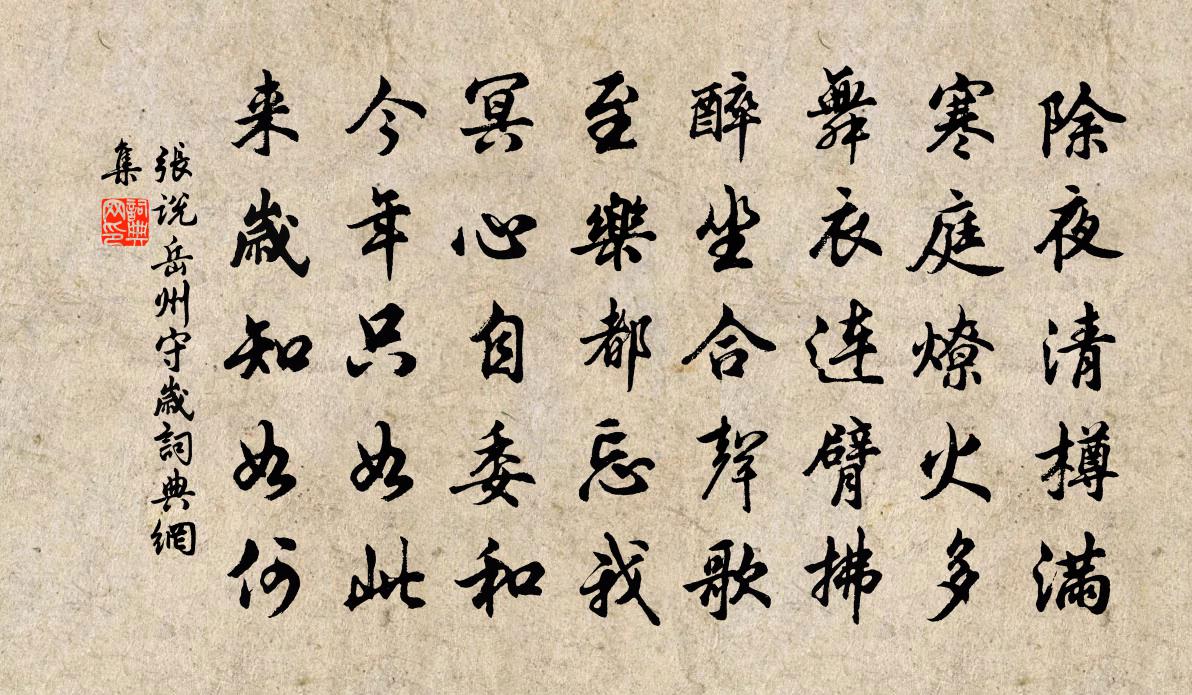 除夜清樽满
寒庭燎火多
舞衣连臂拂
醉坐合聲歌
至樂都忘我
冥心自委和
今年只如此
来歲知如何
張说岳州守歲詞典網
集
詞典
网印